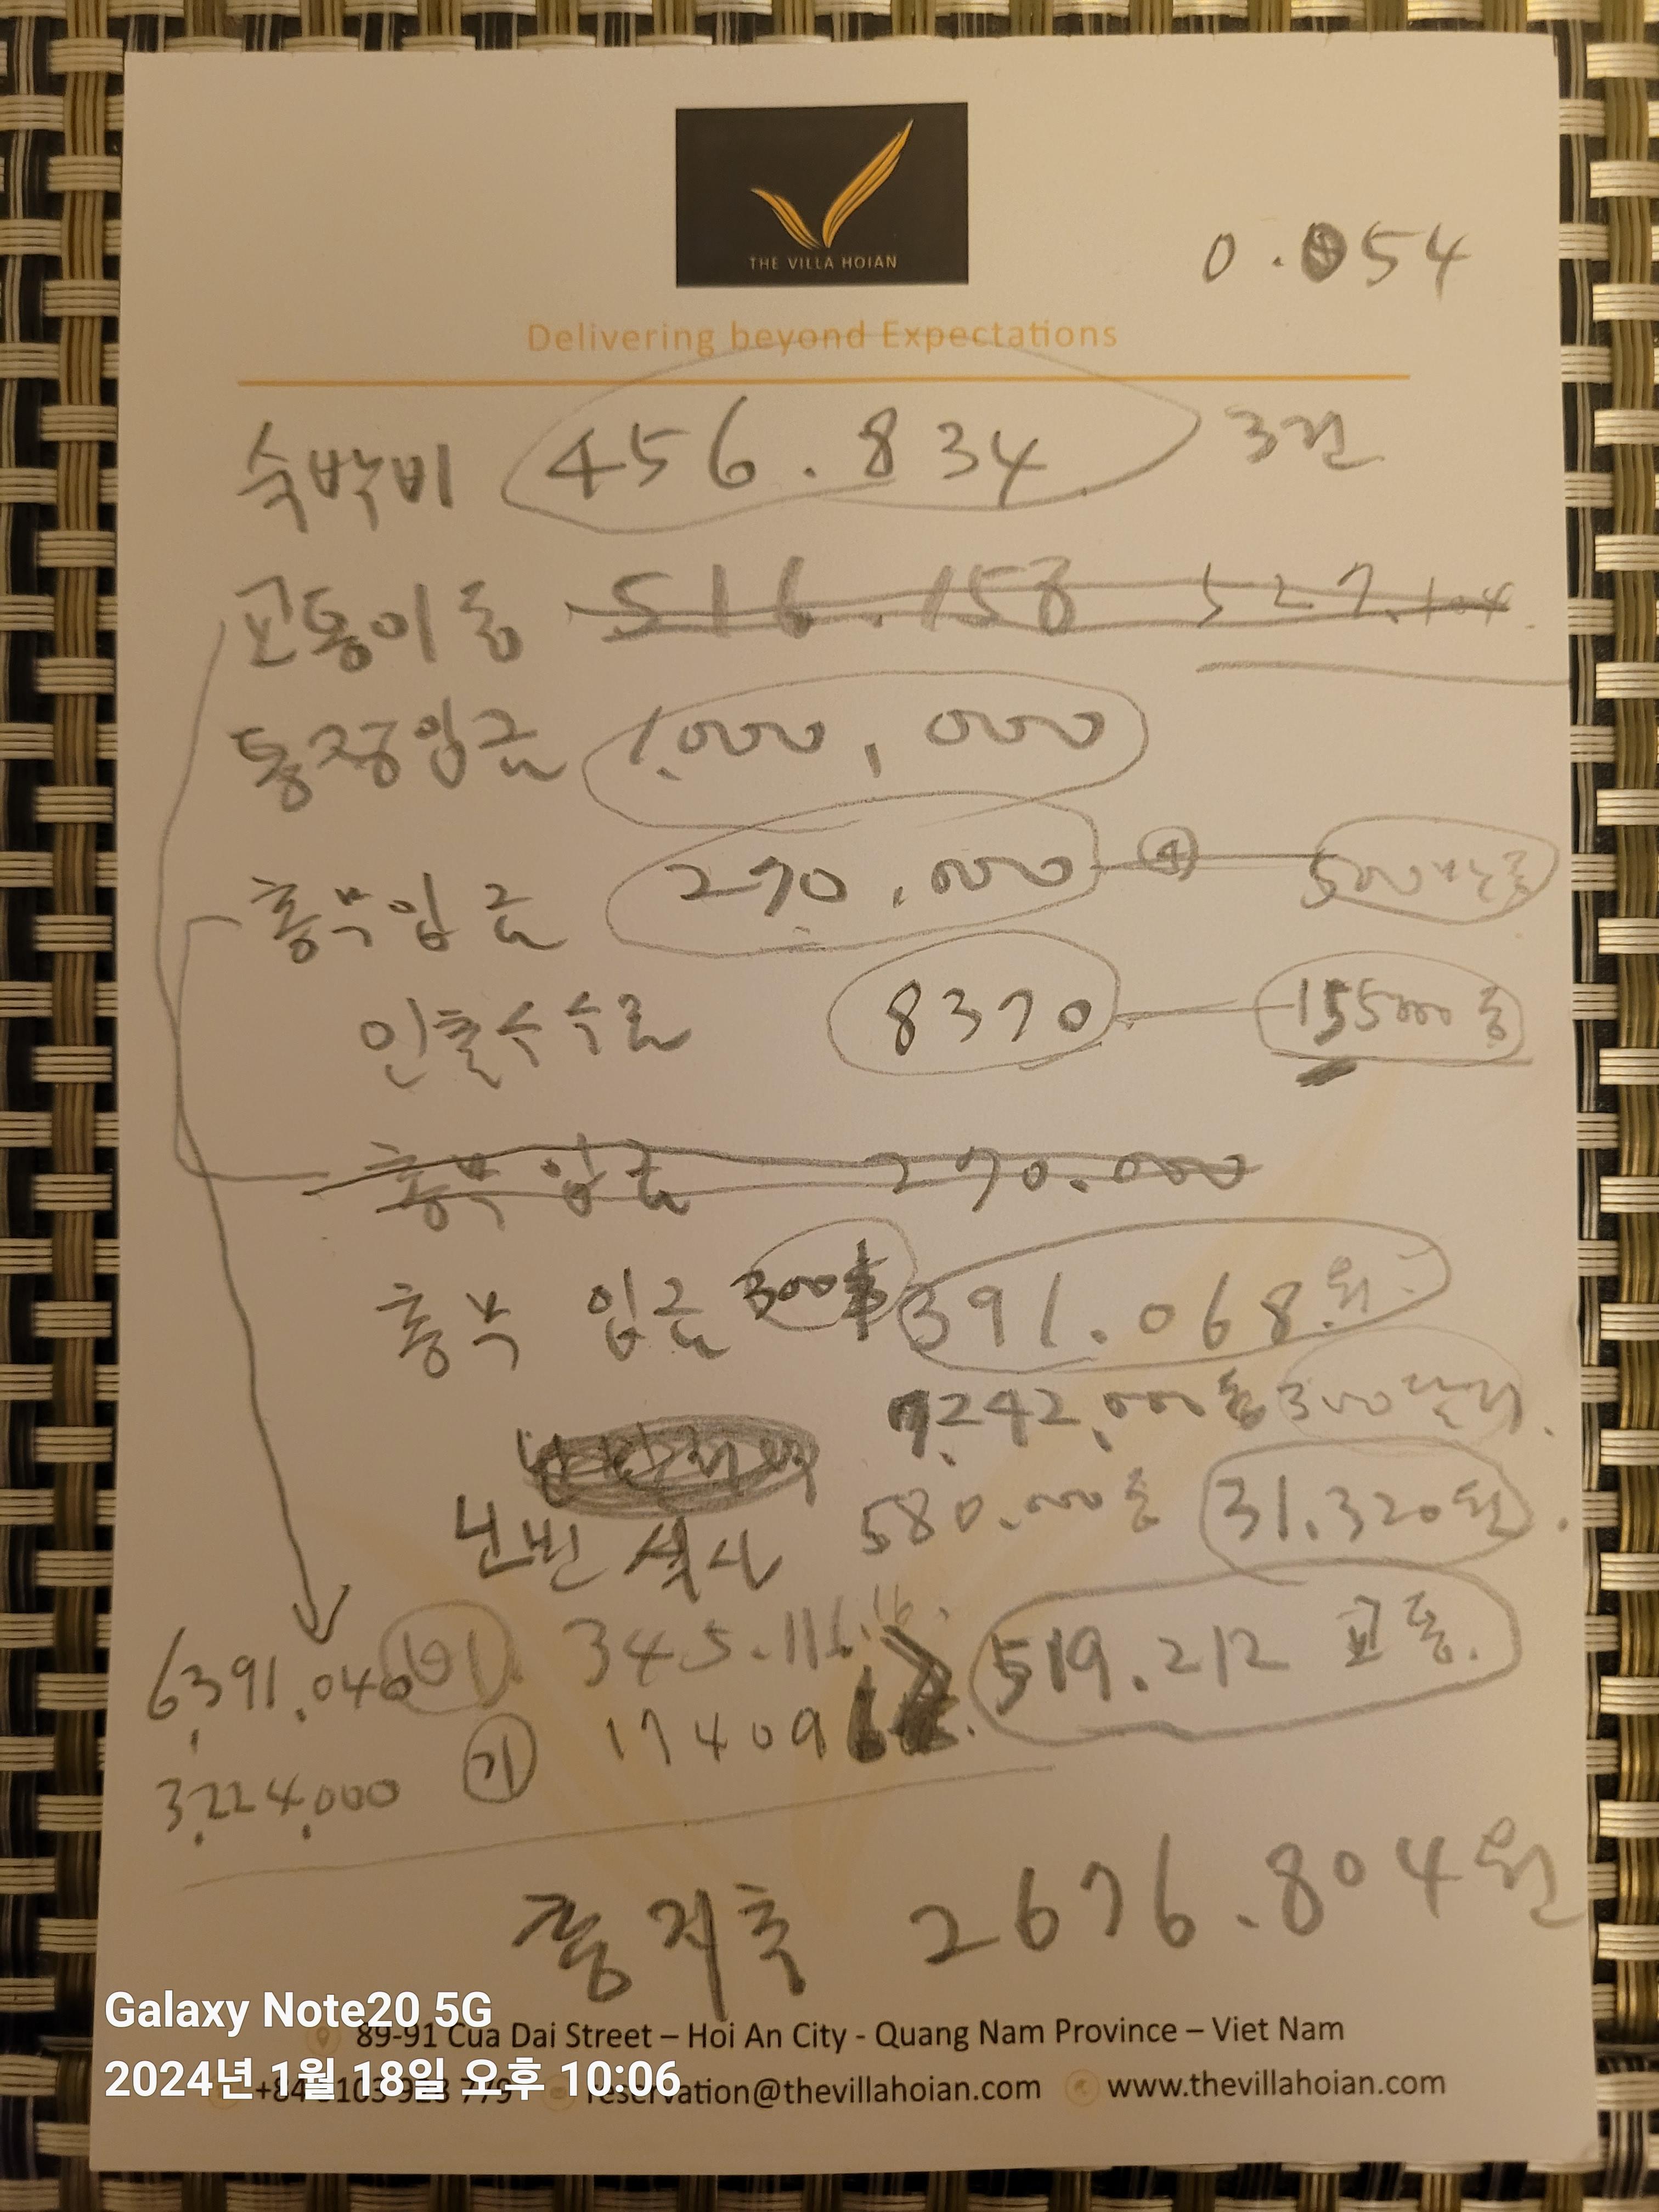 THE VILLA HOIAN
0.054
Delivering beyond Expectations
숙박비 456.834 3건
교통이동 516.158 527.104
통장입금 1,000,000
총무입금 270.000 ④ 500만동
인출수수료 8370 155000동
총무 입금 270.000
총무 입금 300$ 391.068원
7242,000동 300달러
닌빈 식사 580.000동 31.320원
6,391.040 비 345.116 519.212 교통
3,224,000 기 174096
총지출 2676.804원
Galaxy Note20 5G
89-91 Cua Dai Street – Hoi An City - Quang Nam Province – Viet Nam
2024년 1월 18일 오후 10:06
reservation@thevillahoian.com www.thevillahoian.com